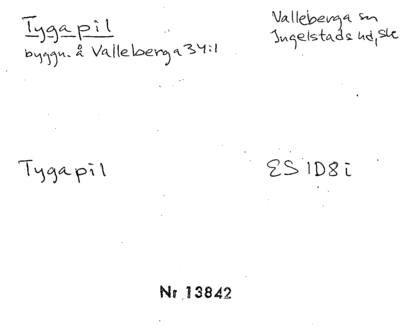 Tygapil
byggn. å Valleberga 34:1
Valleberga sn
Ingelstads hd, sk
Tygapil
ES 1D8i
Nr 13842